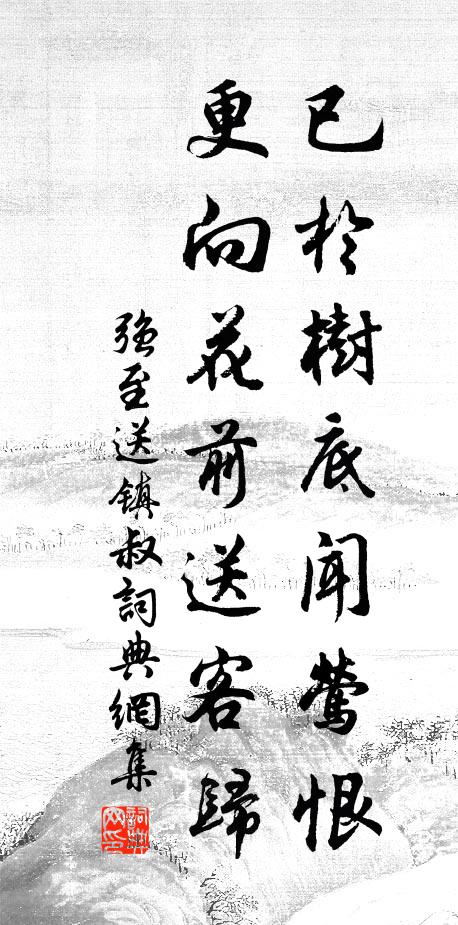 已於樹底闻鶯恨
更向花前送客歸
強至送鎮叔詞典網集